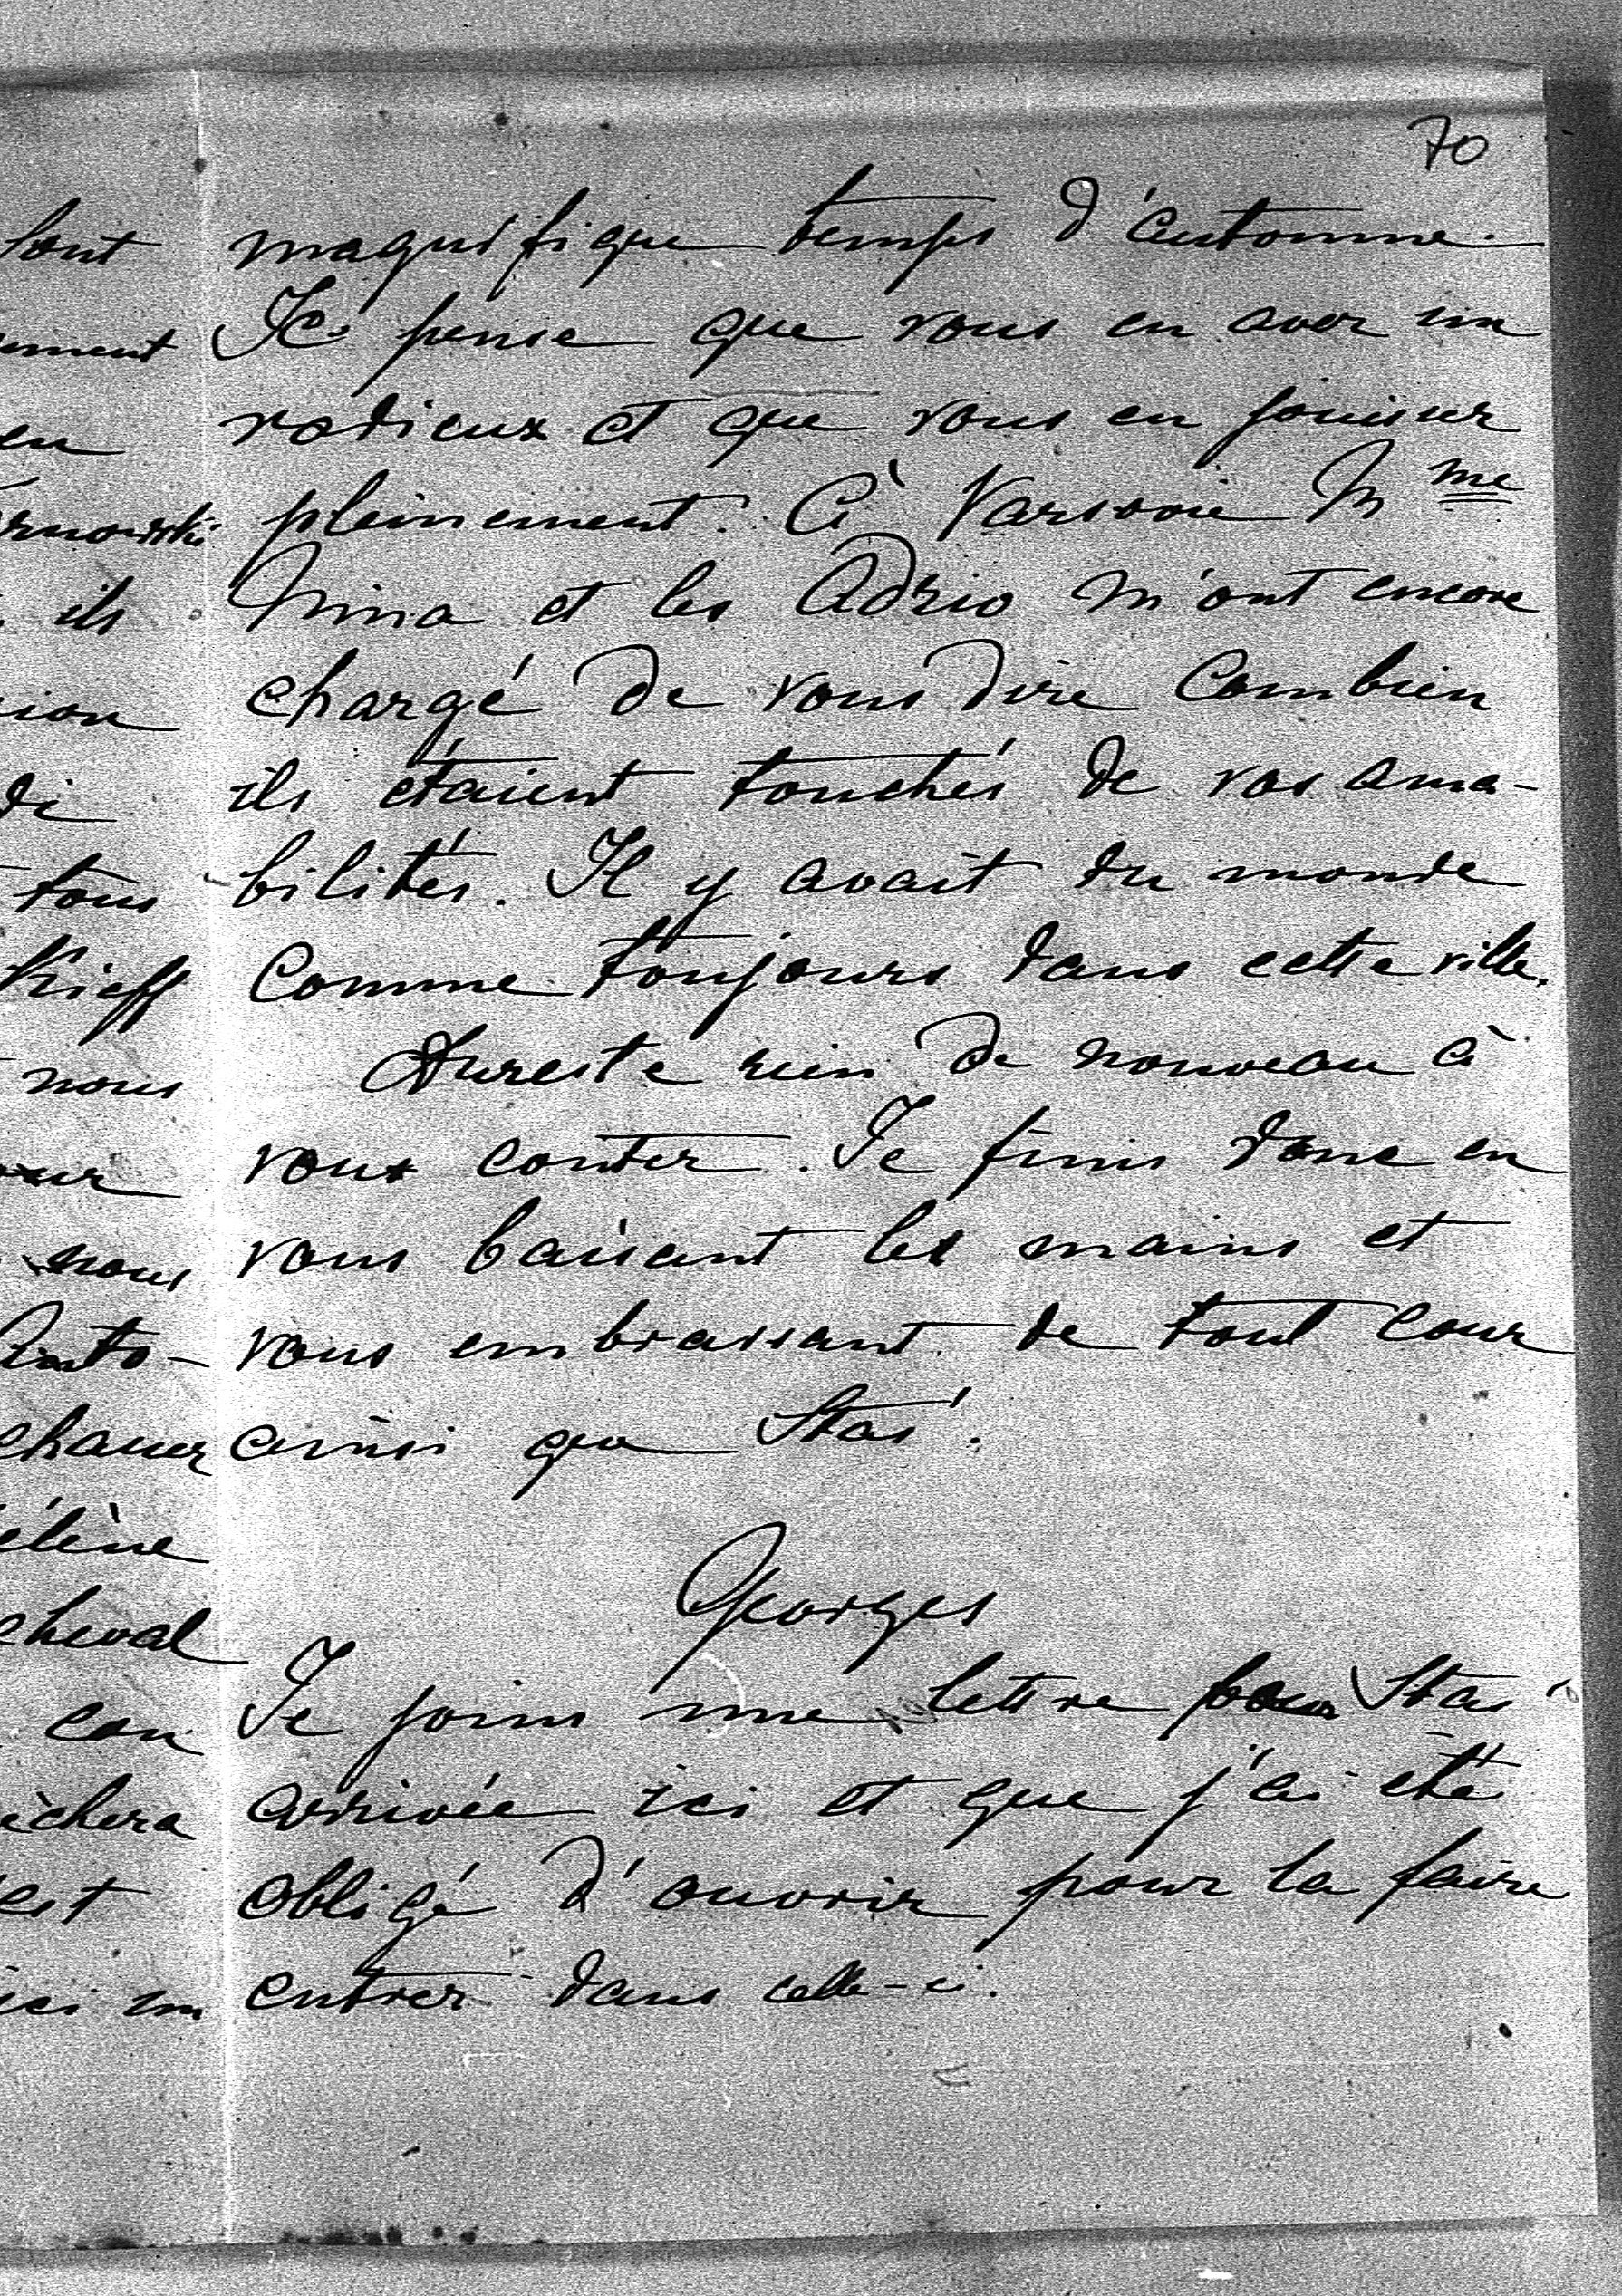 70
magnifique temps d'automne.
Je pense que vous en avez un
radieux et que vous en jouissez
pleinement. à Varsovie Mme
Nina et les Adzio m'ont encore
chargé de vous dire combien
ils étaient touchés de vos ama-
bilités. Il y avait du monde
comme toujours dans cette ville.
Dureste rien de nouveau à
vous conter. Je finis donc en
vous baisant les mains et
vous embrassant de tout cœur
ainsi que Staś.
Georges
Je joins une lettre pour Staś
arrivée ici et que j'ai été
obligé d'ouvrir pour la faire
entrer dans celle-ci.
sont
en
ils
di
tous
Kieff
nous
nous
cheval
ici un